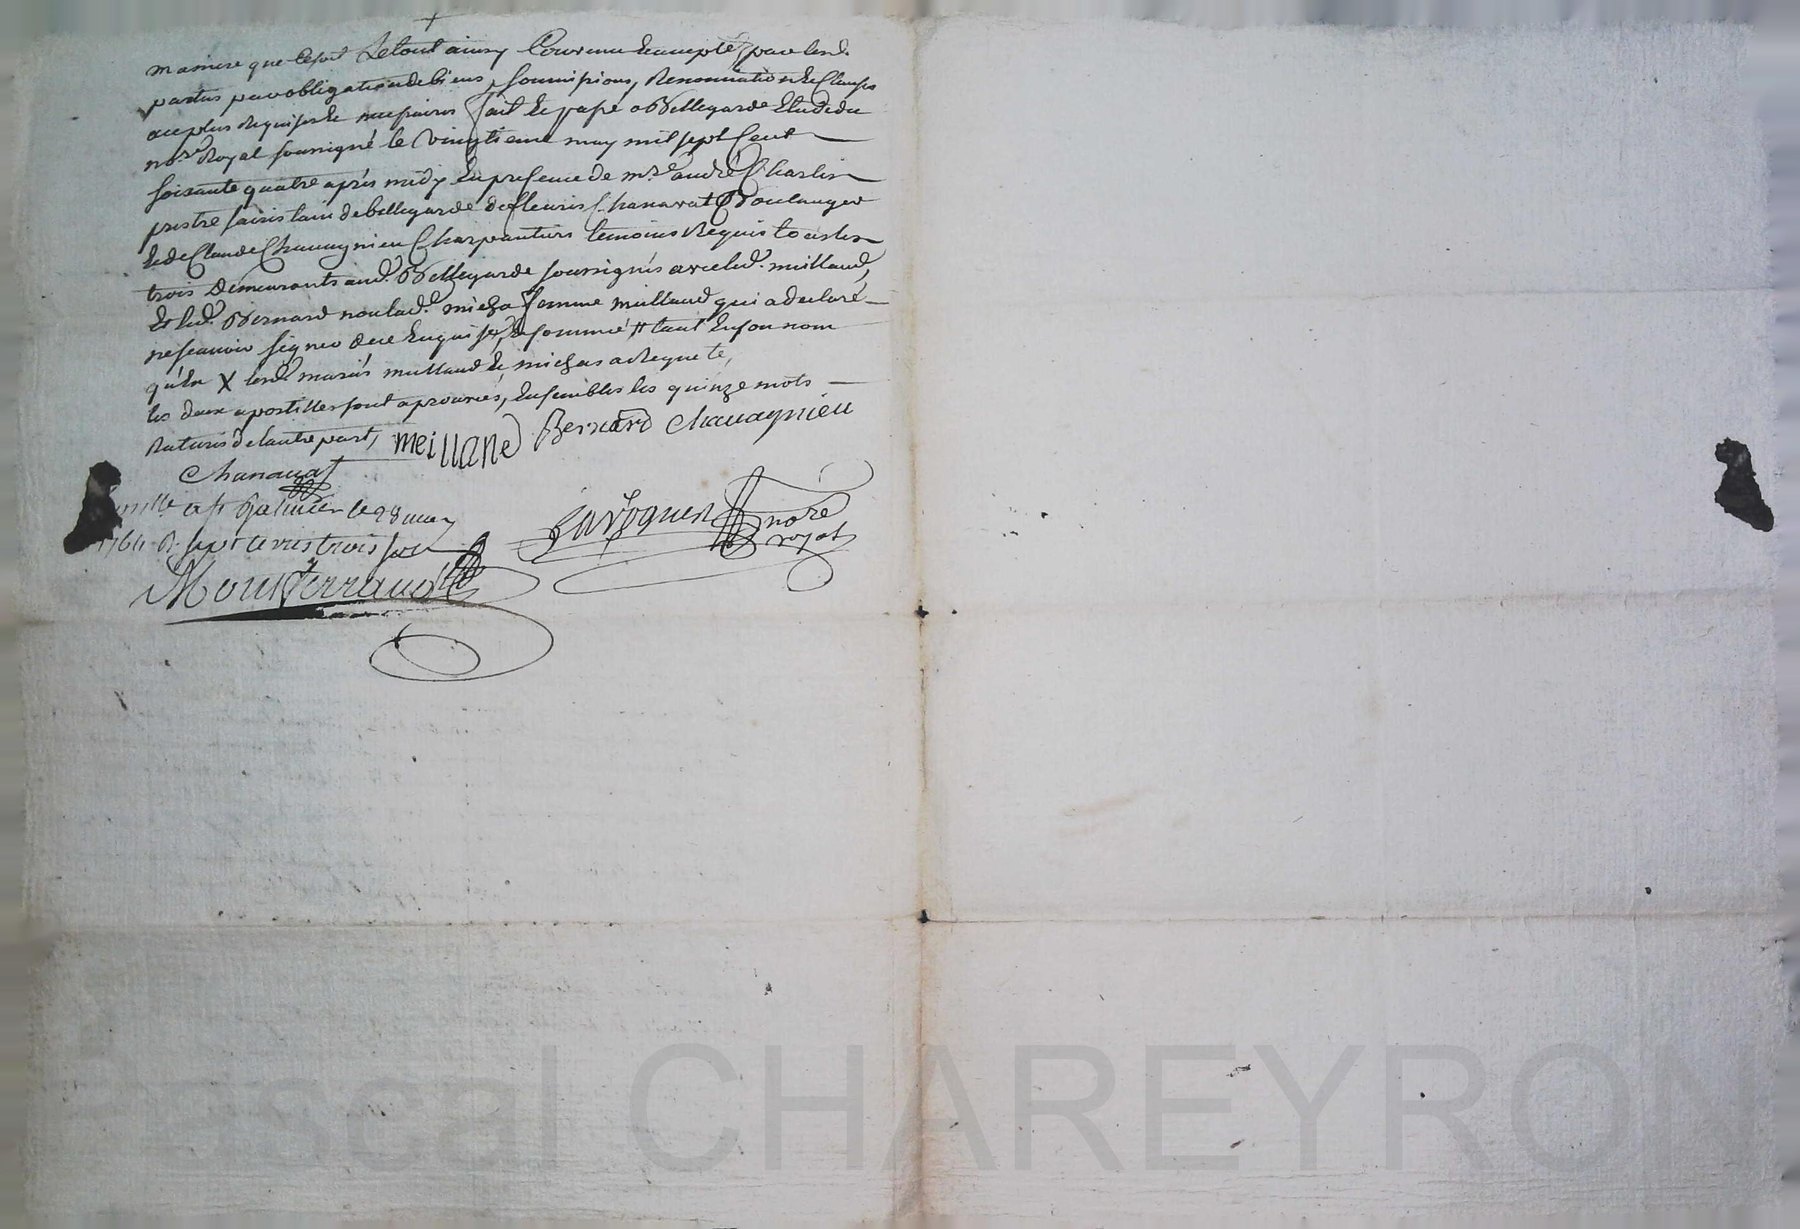 maniere que ce soit Le tout ainsy Convenu & accepté par lesd.
parties par obligation de biens, soumissions, Renonciation & Clauses
au plus Requises & necessaires fait & passé a Bellegarde Etude du
no.re Royal soussigné le vingtieme may mil sept Cent
soixante quatre après midy En presence de m.re andré Charlin
prestre sacristain de bellegarde de fleuris Chanavat Boulanger
& de Claude Chavagnieu Charpentiers temoins Requis tous les
trois demeurants aud. Bellegarde soussignés avec led. meilland,
& led. Bernard non lad. micha femme meilland qui a declaré
ne scavoir signer de ce Enquise, & sommée # tant En son nom
qu'en X lesd. mariés meilland & michas a Requete,
les deux apostilles sont aprouvées, Ensembles les quinze mots
Raturés de l'autre part,
meilland Bernard Chavagnieu
Chanavat
a st Galmier le 28 may
1764 R. sept livres trois sols
no.re
royal
Montferrand
Pascal CHAREYRON